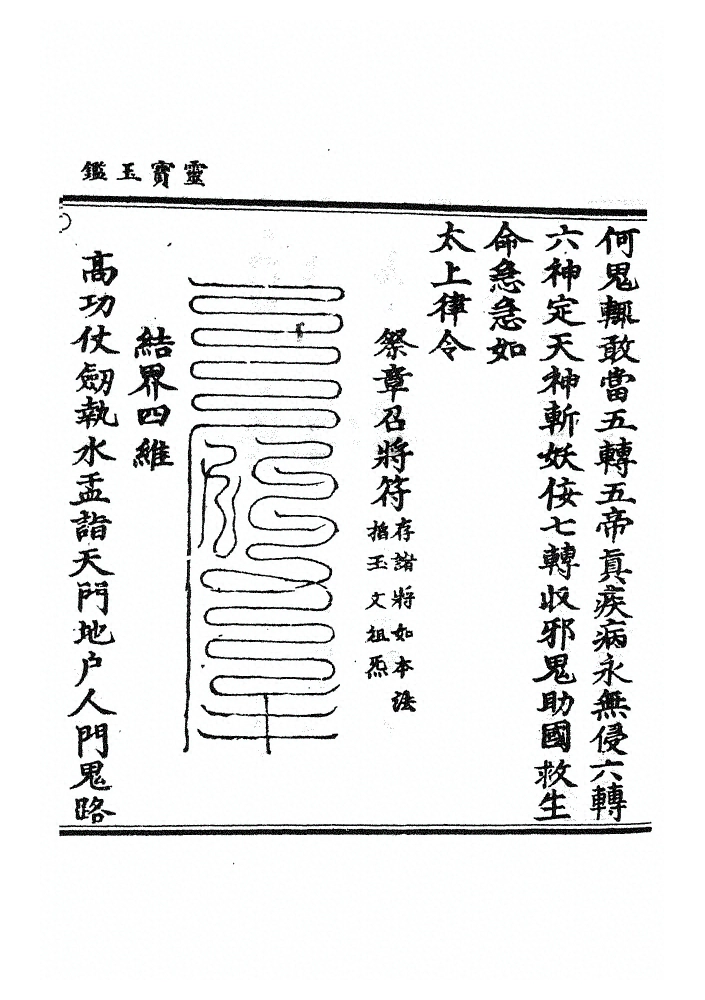 靈寶玉鑑
何鬼輒敢當五轉五帝眞疾病永無侵六轉
六神定天神斬妖侫七轉收邪鬼助國救生
命急急如
太上律令
祭章召將符
存諸將如本法
掐玉文祖炁
結界四維
高功仗劒執水盂詣天門地户人門鬼路